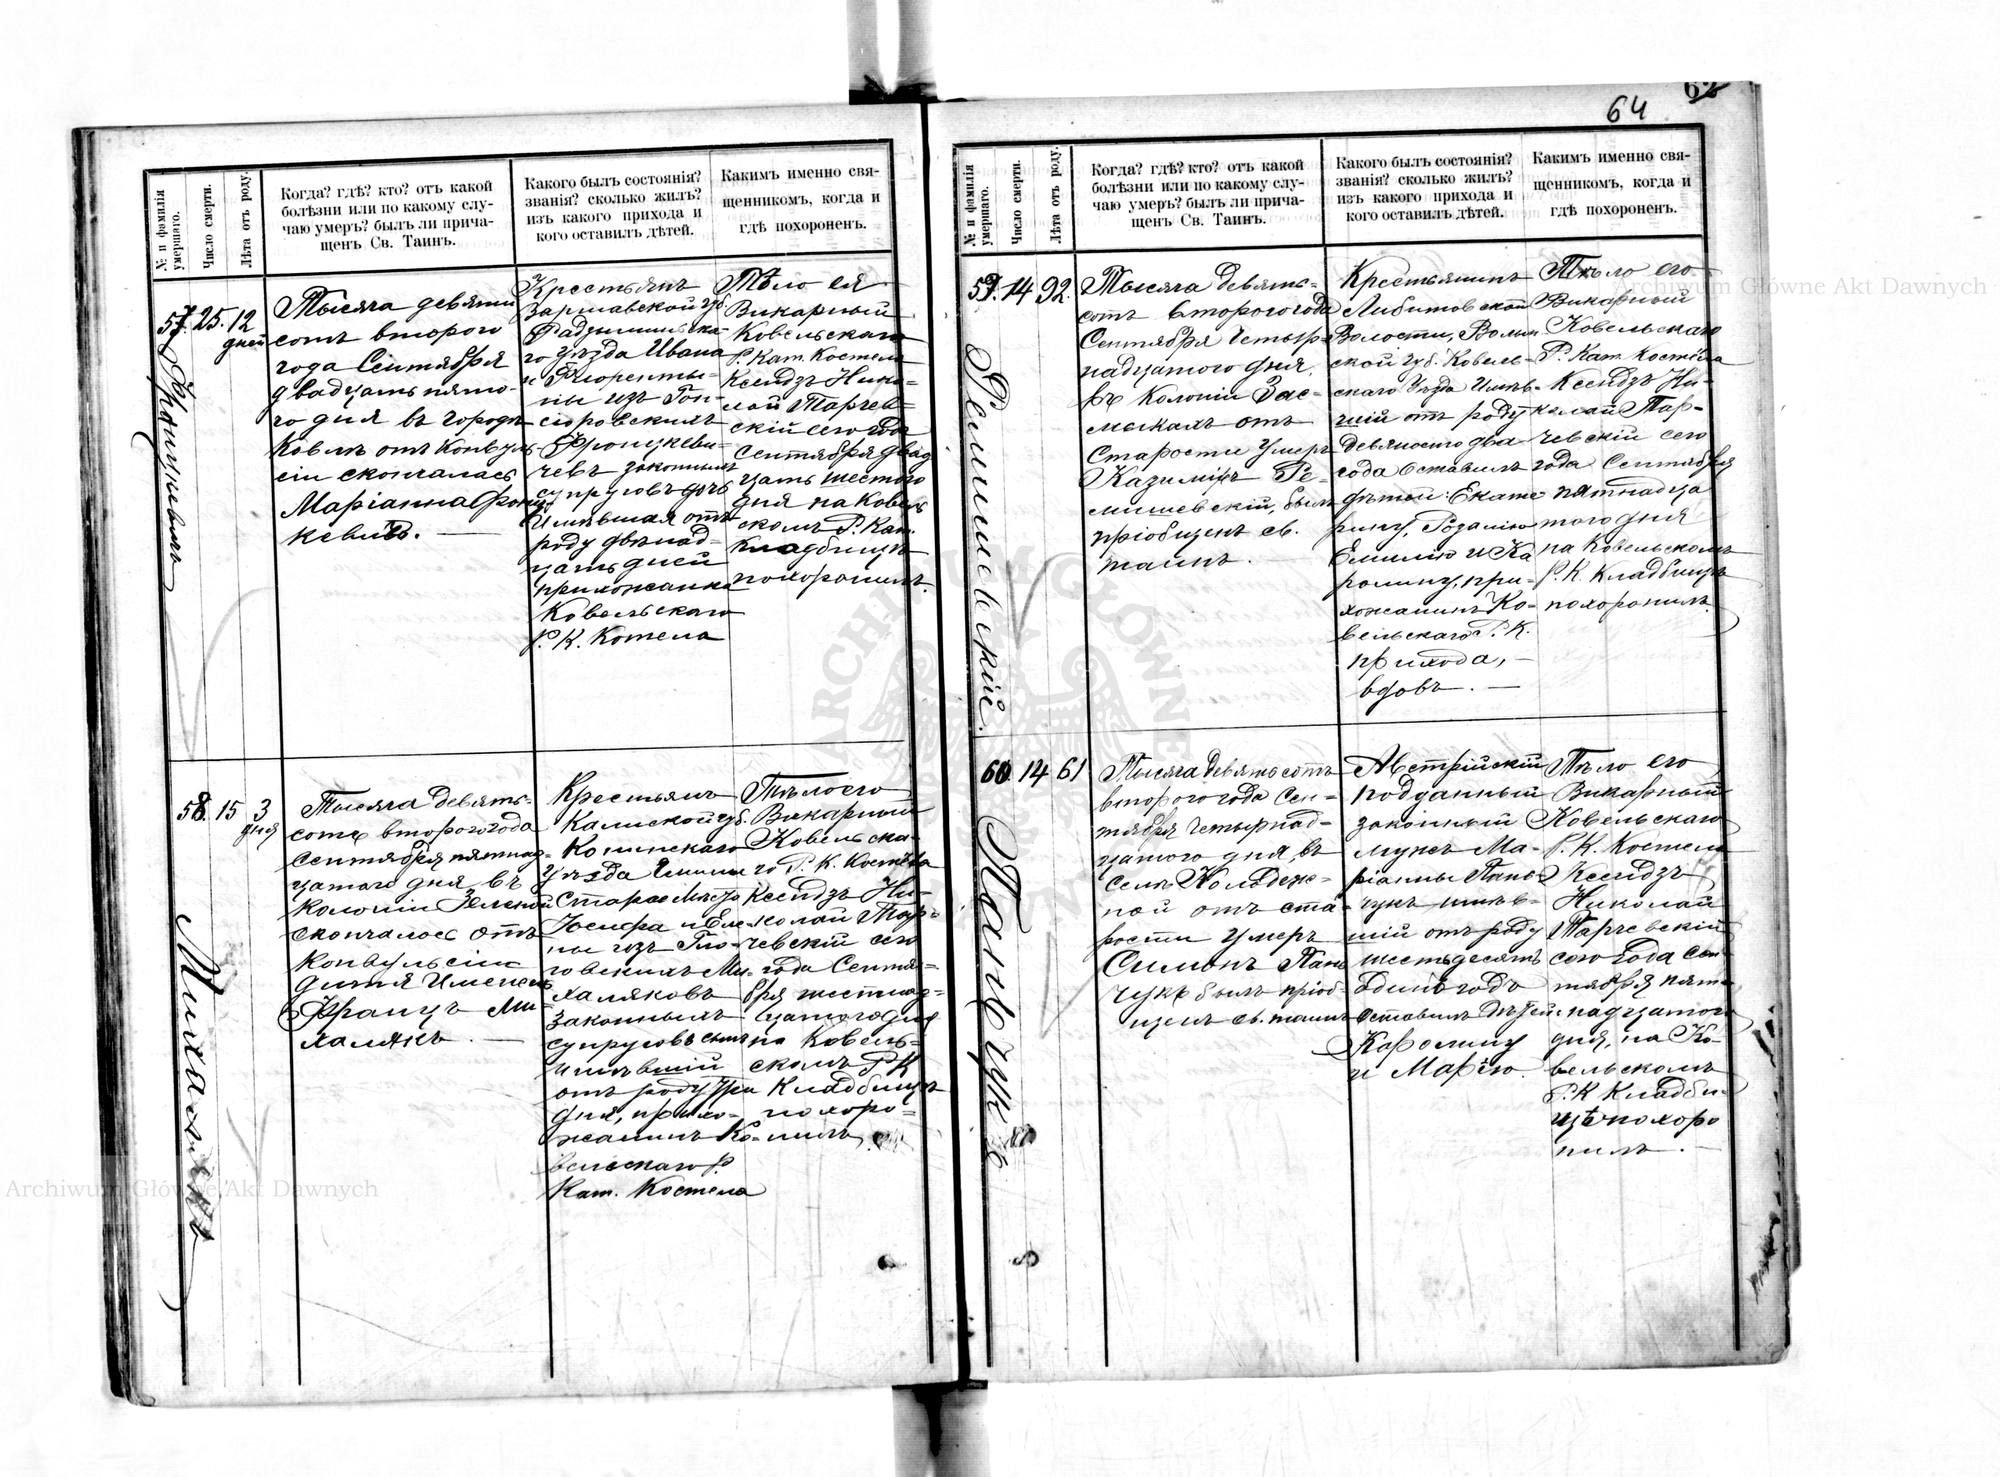 64
№ и фамилія умершаго.
Число смерти.
Лѣта отъ роду.
Когда? гдѣ? кто? отъ какой
болѣзни или по какому слу-
чаю умеръ? былъ ли прича-
щенъ Св. Таинъ.
Какого былъ состоянія?
званія? сколько жилъ?
изъ какого прихода и
кого оставилъ дѣтей.
Какимъ именно свя-
щенникомъ, когда и
гдѣ похороненъ.
57. 25. 12
дней
Тысяча девять
сотъ второго
года Сентября
двадцать пято-
го дня въ городѣ
Ковлѣ отъ Конвуль
сіи скончалась
Маріанна
кевичъ.
Крестьянъ
Варшавской губ.
Радзыминска-
го уѣзда Ивана
и Флоренты-
ны изъ Гон-
сіоровскихъ
чевъ законныхъ
супруговъ дочь
имѣвшая отъ
роду двѣнад-
цать дней
прихожанка
Ковельскаго
Р. К. Костела
Тѣло ея
Викарный
Ковельскаго
Р. Кат. Костела
Ксендзъ Нико-
лай Тарчев-
скій сего года
Сентября двад
цать шестого
дня на Ковель
скомъ Р. Кат.
Кладбищѣ
похоронилъ.
58. 15 3
дня
Михалякъ
Тысяча девять-
сотъ второго года
Сентября пятнад-
цатаго дня въ
Колоніи Зеленой
скончалось отъ
Конвульсіи
дитя Именемъ
Францъ Ми-
халякъ.
Крестьянъ
Калиской губ.
Конинскаго
уѣзда Гмины
Старое Място
Іосифа и Еле-
ны изъ Гло-
говскихъ Ми-
халяковъ
законныхъ
супруговъ сынъ
имѣвшій
отъ роду три
дня, прихо-
жанинъ Ко-
вельскаго Р.
Кат. Костела
Тѣло его
Викарный
Ковельска-
го Р. К. Костела
Ксендзъ Ни-
колай Тар-
чевскій сего
года Сентя-
бря шестнад-
цатаго дня
на Ковель-
скомъ Р. К
Кладбищѣ
похоро-
нилъ
№ и фамилія умершаго.
Число смерти.
Лѣта отъ роду.
Когда? гдѣ? кто? отъ какой
болѣзни или по какому слу-
чаю умеръ? былъ ли прича-
щенъ Св. Таинъ.
Какого былъ состоянія?
званія? сколько жилъ?
изъ какого прихода и
кого оставилъ дѣтей.
Какимъ именно свя-
щенникомъ, когда и
гдѣ похороненъ.
59. 14 92.
Ремишевскій.
Тысяча девять-
сотъ второго года
Сентября четыр-
надцатого дня,
въ Колоніи Зас-
мыкахъ отъ
Старости умеръ
Казиміръ Ре-
мишевскій, былъ
пріобщенъ св.
таинъ.
Крестьянинъ
Любитовской
Волости, Волын
ской губ. Ковель-
скаго Уѣзда имѣв-
шій отъ роду
девяносто два
года оставилъ
дѣтей: Екате
рину, Розалію
Емилію и Ка
ролину, при-
хожанинъ Ко-
вельскаго Р. К.
прихода,
вдовъ.
Тѣло его
Викарный
Ковельскаго
Р. Кат. Костела
Ксендзъ Ни-
колай Тар-
чевскій сего
года Сентября
пятнадца
того дня
на Ковельскомъ
Р. К. Кладбищѣ
похоронилъ.
60. 14 61
Панчукъ
Тысяча девятьсотъ
второго года Сен-
тября четырнад-
цатого дня, въ
селѣ Колодеж-
ной отъ ста-
рости умеръ
Симонъ Пан
чукъ былъ пріоб-
щенъ св. таинъ
Австрійскій
подданный
законный
мужъ Ма-
ріанны Пан-
чукъ имѣв-
шій отъ роду
шестьдесятъ
одинъ годъ
оставилъ дѣтей:
Каролину
и Марію.
Тѣло его
Викарный
Ковельскаго
Р. К. Костела
Ксендзъ
Николай
Тарчевскій
сего года Сен-
тября пят-
надцатого
дня, на Ко-
вельскомъ
Р. К Кладби-
щѣ похоро
нилъ.
Archiwum Główne Akt Dawnych
Archiwum Główne Akt Dawnych